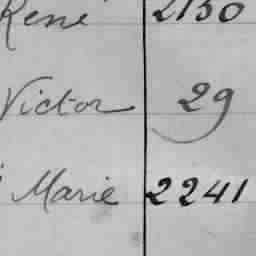 René 2130
Victor 29
Marie 2241